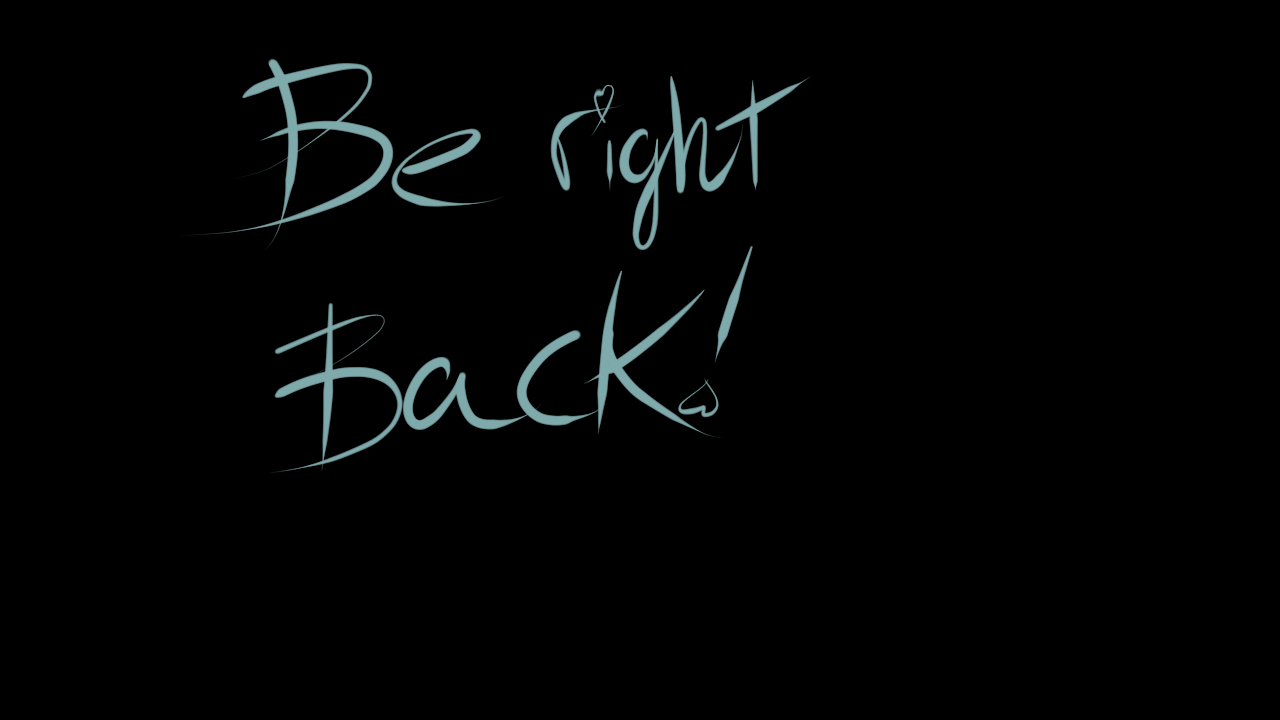 Be right
Back!